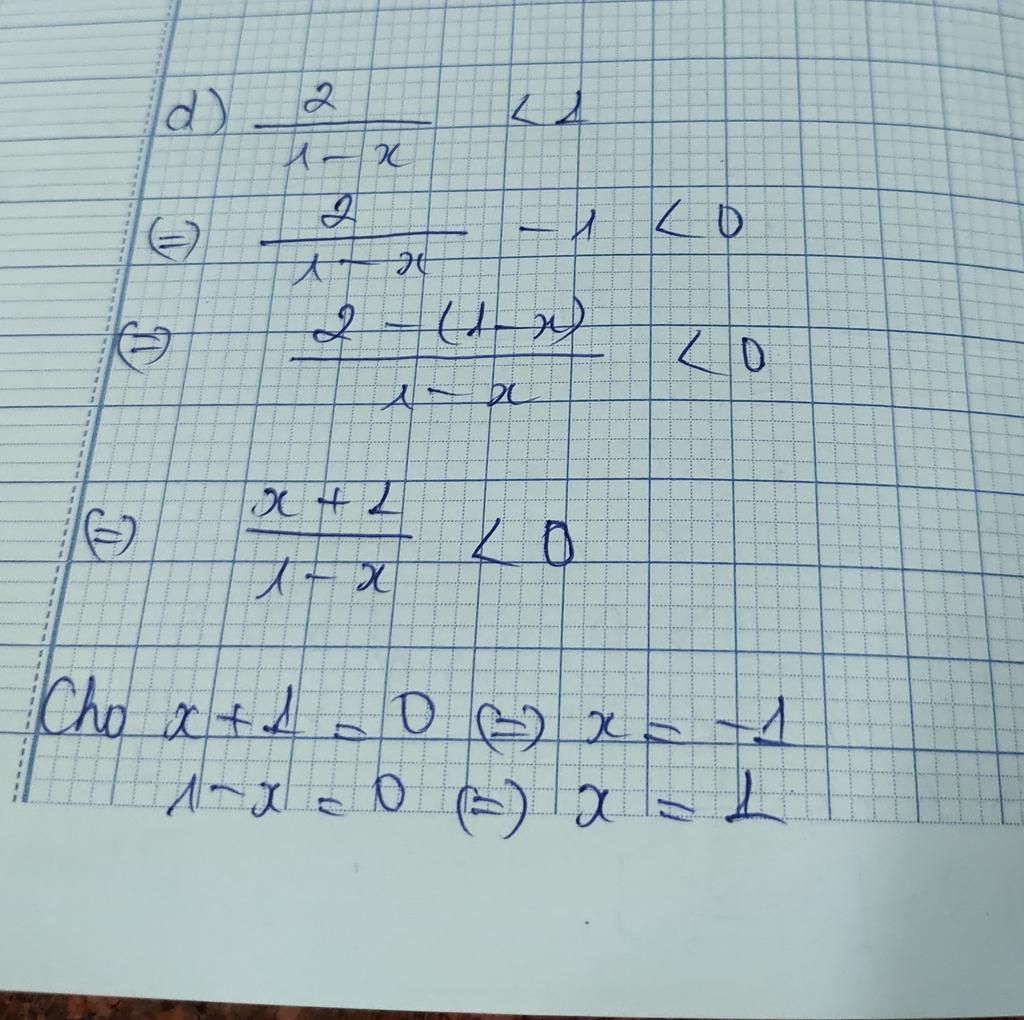 d) 2/(1-x) < 1
(=) 2/(1-x) - 1 < 0
(=) (2-(1-x))/(1-x) < 0
(=) (x+1)/(1-x) < 0
Cho x+1 = 0 (=) x = -1
1-x = 0 (=) x = 1